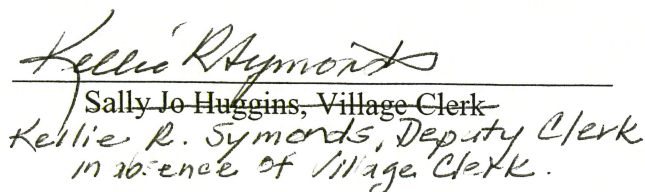 Kellie R Symonds
Sally Jo Huggins, Village Clerk
Kellie R. Symonds, Deputy Clerk
in absence of Village Clerk.